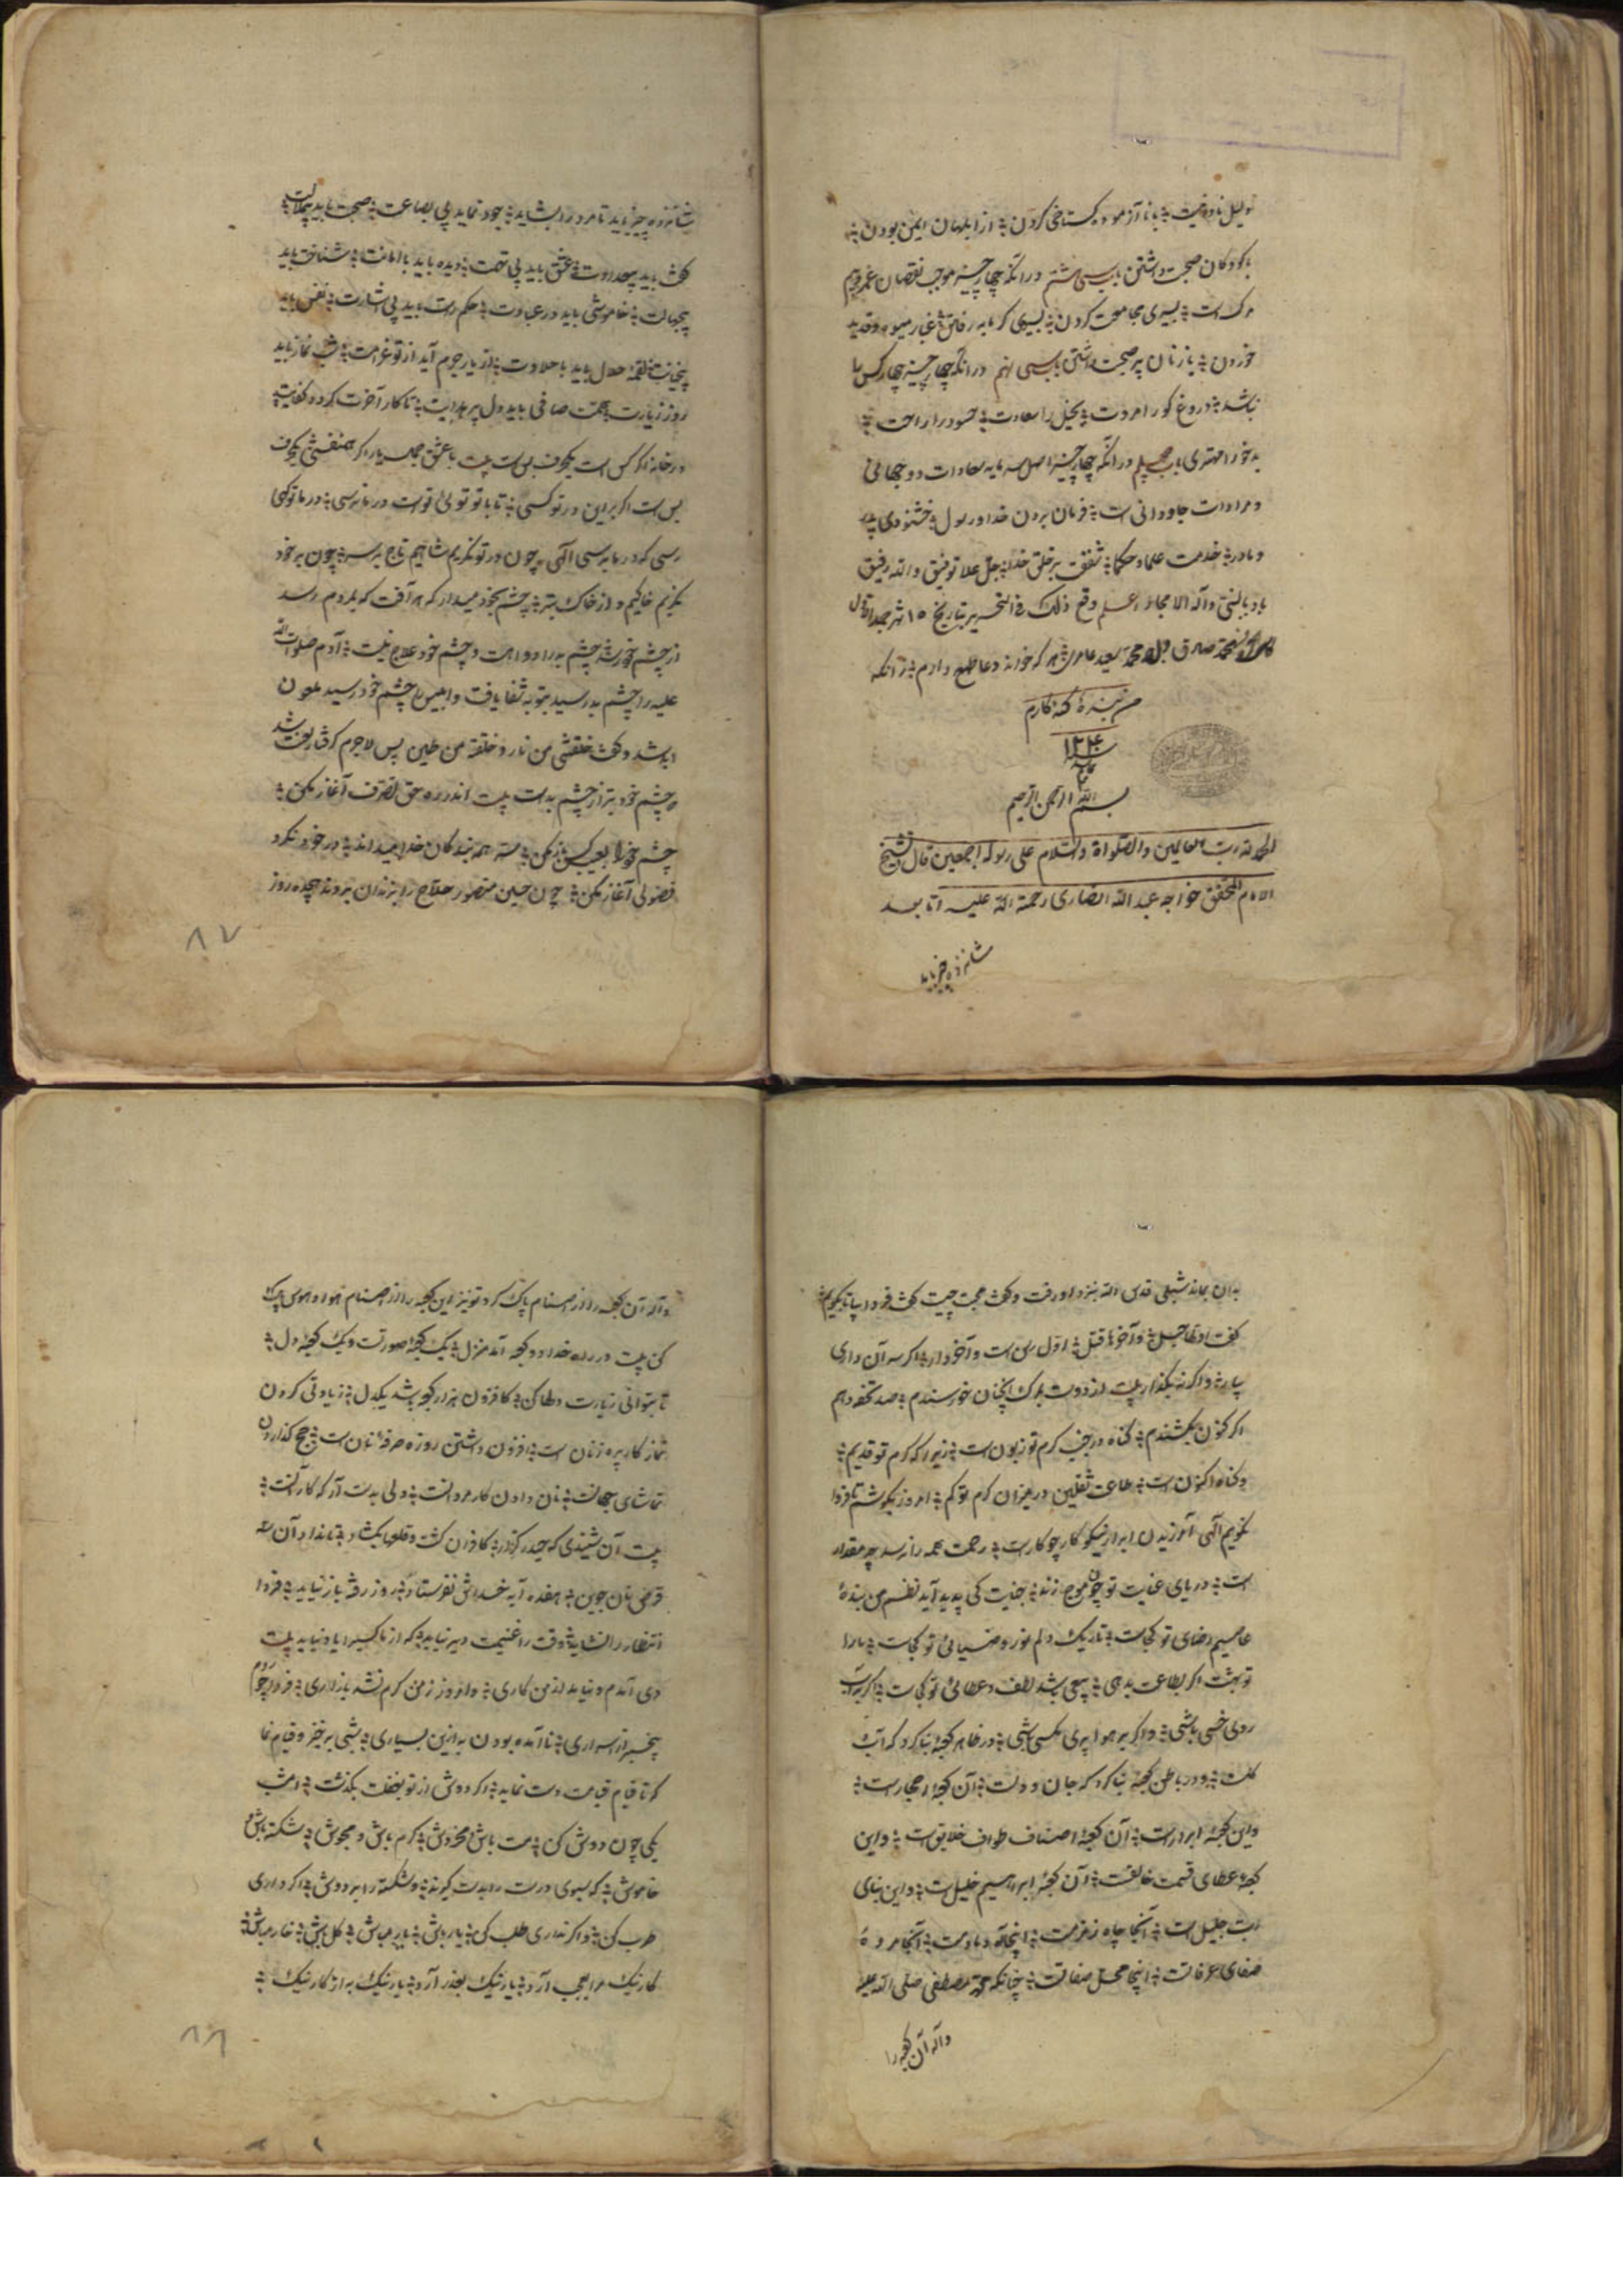 دلیل نادانیست با ناآزموده گستاخی کردن از ابلهان ایمن بودن
با کودکان صحبت داشتن باب سی هشتم در آنکه چهار چیز موجب نقصان عمر و بیم
مرگ است بسیاری مجامعت کردن بسیاری گرمابه رفتن قدید
خوردن با زنان پیر صحبت داشتن باب سی نهم در آنکه چهار چیز چهار کس را
نباشد دروغ گو را مروت بخیل را سعادت حسود را راحت
بدخو را مهتری باب چهلم در آنکه چهار چیز اصل سرمایه سعادات دو جهانی
و مرادات جاودانی است فرمان بردن خدا و رسول خشنودی پدر
و مادر خدمت علما و حکما شفقت بر خلق خدا جل علا توفیق و الله رفیق
باد بالنبی و آله الامجاد اعلم وقع ذلک فی التحریر بتاریخ ۱۵ شهر
محمد صادق ولد محمد سعید هر که خواند دعا طمع دارم زانکه
من بنده گنه کارم
۱۲۴۰
بسم الله الرحمن الرحیم
الحمد لله رب العالمین والصلواة والسلام علی رسوله اجمعین قال الشیخ
الامام المحقق خواجه عبد الله انصاری رحمة الله علیه اما بعد
شانزده چیز باید
شانزده چیز باید تا مرد را بشاید جود نماید بی بضاعت صحبت باید بی ملالت
گفت باید بی عداوت عشق باید بی تهمت دیده باید با امانت شناخت باید
بی جهالت خاموشی باید در عبادت حکم راست باید بی اشارت نفس باید
بی خیانت لقمه حلال باید با حلاوت از یار جرم آید از تو غرامت شب نماز باید
روز زیارت همت صافی باید دل پر هدایت تا کار آخرت گردد کفایت
در خانه اگر کس است یکحرف بس است بیت با عشق همنفسی یکحرف
بس است اگر بر این در تو کسی تا با تو تویی تو است در ما نرسی در ما تو گهی
رسی که در ما برسی الهی چون در تو نگریم شاهیم تاج بر سر چون بر خود
نگریم خاکیم و از خاک بتر چشم بخود میدار که هر آفت که بمردم رسد
از چشم خود رسد چشم بد را دوا هست و چشم خود علاج نیست آدم صلوات الله
علیه را چشم بد رسید بتوبه شفا یافت و ابلیس را چشم خود رسید ملعون
ابد شد و گفت خلقتنی من نار و خلقته من طین پس لاجرم گرفتار لعنت شد
چشم خود بتر از چشم بد است بیت اندر ره حق تصرف آغاز مکن
چشم خود را بعیب کس باز مکن سر همه بندگان خدا میداند در خود نگرد
فضولی آغاز مکن چون حسین منصور حلاج را بزندان بردند هجده روز
۸۷
بدان بماند شبلی قدس الله بنزد او رفت و گفت محبت چیست گفت فردا بیا تا بگویم
گفت اولها حبل و آخرها قتل اول رسن است و آخر دار اگر سر آن داری
بیا و اگر نه بگذار بیت از دوست بمرگ آنچنان خورسندم صد تحفه دهم
اگر کنون بکشندم گناه در جنب کرم تو زبون است زیرا که کرم تو قدیم
و گناه اکنون است طاعت ثقلین در میزان کرم تو کم امروز بکوشم تا فردا
بگویم الهی آمرزیدن ابرار نیکو کار چو کار است رحمت همه را نرسد چه مقدار
است دریای عنایت تو چون موج زند جنایت کی پدید آید نظم من بنده
عاصیم رضای تو کجاست تاریک دلم نور و ضیای تو کجاست ما را
تو بهشت اگر بطاعت بدهی بیعی باشد لطف و عطای تو کجاست اگر بر آب
روی خسی باشی و اگر بر هوا پری مگسی باشی در ظاهر کعبه بنا کرد که آب
گلست و در باطن کعبه بنا کرد که جان و دلست آن کعبه احجار است
و این کعبه ابرار است آن کعبه اصناف طواف خلایق است و این
کعبه عطای قسمت خالقست آن کعبه ابراهیم خلیل است و این بنای
رب جلیل است آنجا چاه زمزم است اینجا آه دمادم است آنجا مروه
صفای عرفات است اینجا محل صفاتست چنانکه محمد مصطفی صلی الله علیه
و آله آن کعبه را
و آله آن کعبه را از اصنام پاک کرد تو نیز این کعبه را از اصنام هوا و هوس پاک
کن بیت در راه خدا دو کعبه آمد منزل یک کعبه صورتست و یک کعبه دل
تا بتوانی زیارت دلها کن کافزون هزار کعبه باشد یکدل زیادتی کردن
نماز کار پیره زنان است افزون داشتن روزه صرفه نان است حج گذاردن
تماشای جهانست نان دادن کار مردانست دلی بدست آر که کار آنست
بیت آن شنیدی که حیدر کرار کافران کشت و قلعها بگشاد تا نداد آن سه
قرص نان جوین هفده آیه خداش نفرستاد روز رفته باز نیاید فردا
انتظار را نشاید وقت را غنیمت دیر نیاید که از ما کسی را یاد نیاید بیت
دی آمدم و نیامد از من کاری و امروز ز من گرم نشد بازاری فردا بروم
بی خبر از اسراری ناآمده بودن به ازین بسیاری شبی برخیز و قیام نما
که تا قیام قیامت دست نماید اگر دوش از تو بغفلت بگذشت امشب
یکی چون دوش کن مست باش مخروش گرم باش و مجوش شکسته باش و
خاموش که سبوی درست را بدست گیرند و شکسته را بر دوش اگر داری
طرب کن و اگر نداری طلب کن یار باش بار مباش گل باش خار مباش
کار نیک مرد را بعجب آرد یار نیک بعذر آرد یار نیک به از کار نیک
۸۸